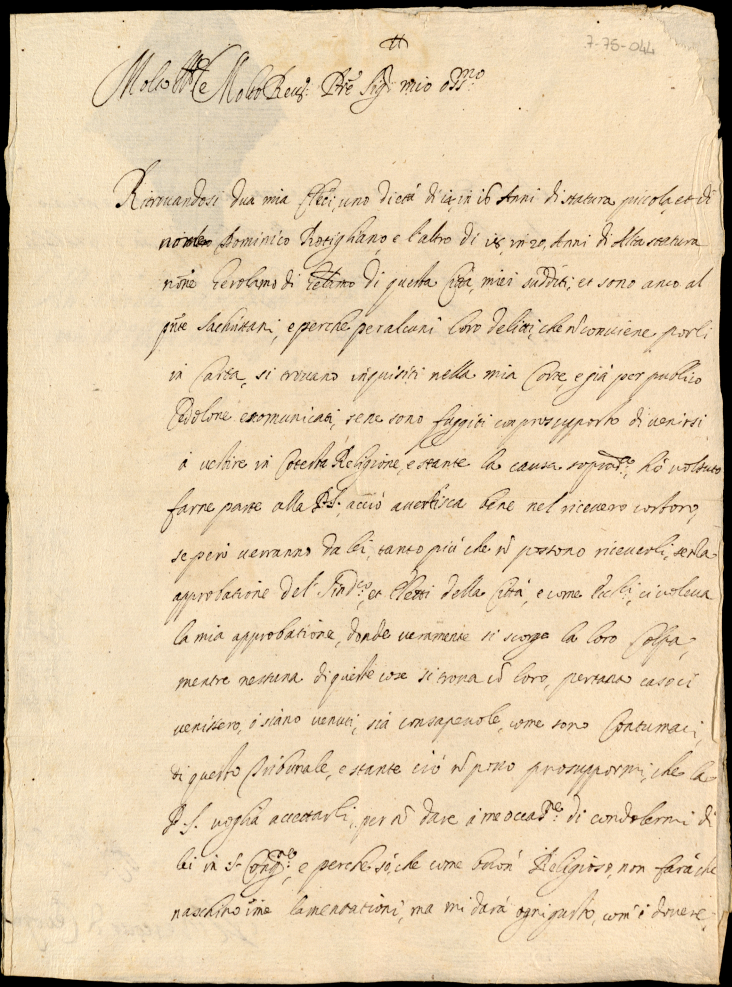 7-75-044
Molto Ill.re e Molto Rev.do P're Sig.r mio oss.mo
Ritrovandosi dua mia Cleci, uno di età di in 16 Anni di statura piccola, et di
nome Dominico Rotigliano, e l'altro di 18, in 20, Anni di Alta statura
nõne Gerolamo di di questa Città, miei sudditi, et sono anco al
p'nte Sachristani, e perche per alcuni loro delitti, che ñ conviene porli
in Carta, si trovano inquisiti nella mia Corte, e già per publico
Cedolone excomunicati, sene sono fuggiti con prosupposto di venirsi
à vestire in Cotesta Religione, e stante la causa sopradª, hò voluto
farne parte alla P. S. acciò avertisca bene nel ricevere costoro,
se però verranno da lei, tanto più che ñ possono riceverli, senza
approbatione del Sind.co, et Eletti della Città, e come ci voleva
la mia approbatione, donde veramente si scorge la loro Colpa,
mentre nessuna di queste cose si trova in loro, pertanto caso ci
venissero, ò siano venuti, sia consapevole, come sono Contumaci,
di questo Tribunale, e stante ciò ñ posso prosuppormi, che la
P. S. voglia accettarli, per ñ dare à me occa.ne di condolermi di
lei in S. Cong.ne, e perche sò, che come bõn Religioso, non farà che
naschino lamentationi, ma mi darà ogni gusto, com'è dovere,